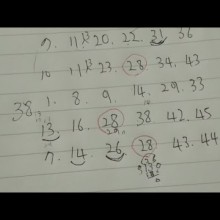 7. 11 13 20. 22. 31 36
10 11 13 23. 28 34. 43
38 1. 8. 9. 14. 29. 33
13. 16. 28 38 42. 45
7. 14. 26. 28 43. 44